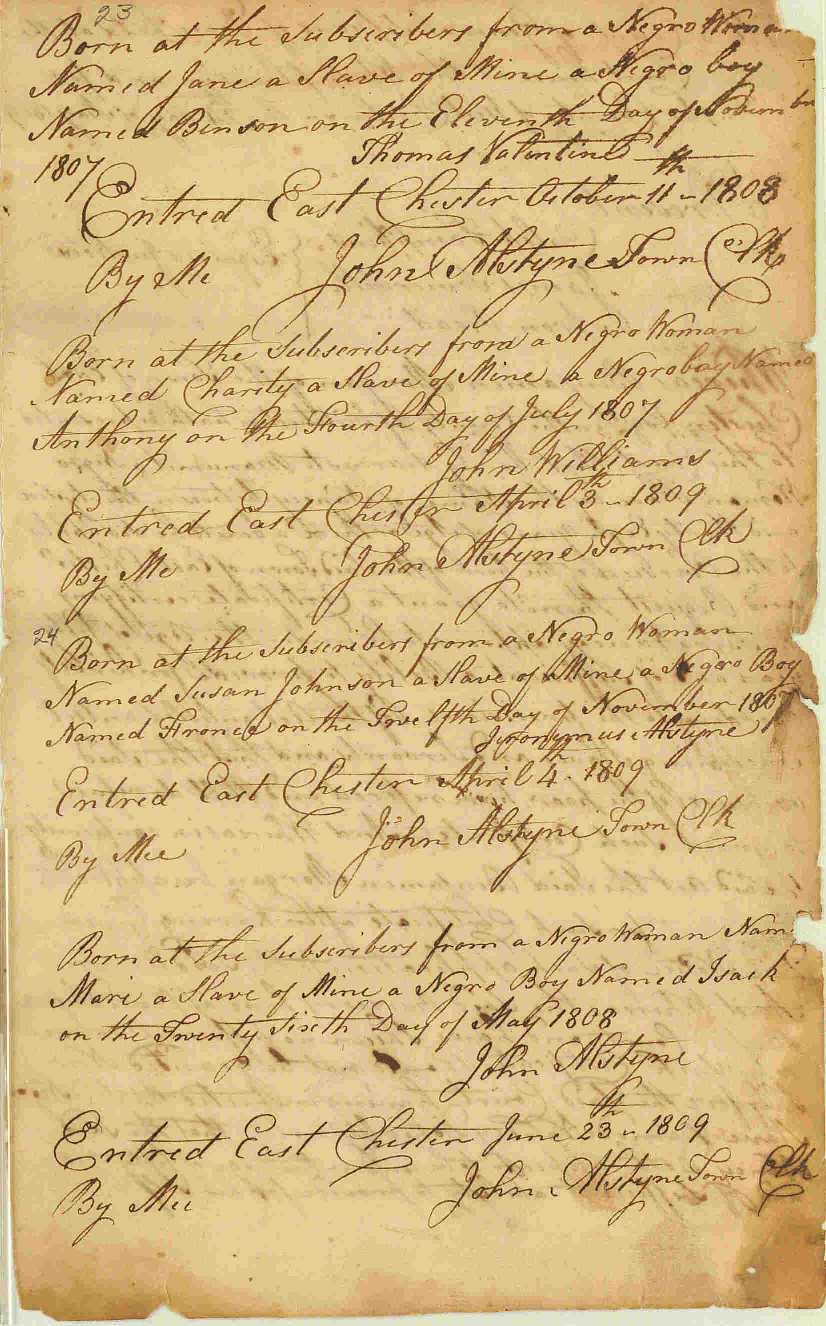 23
Born at the Subscribers from a Negro Woman
Named Jane a Slave of Mine a Negro boy
Named Benson on the Eleventh Day of November
1807 Thomas Valentine
Entred East Chester October 11th - 1808
By Me John Alstyne Town Clk
Born at the Subscribers from a Negro Woman
Named Charity a Slave of Mine a Negro boy Named
Anthony on the Fourth Day of July 1807
John Williams
Entred East Chester April 3th - 1809
By Me John Alstyne Town Clk
24
Born at the Subscribers from a Negro Woman
Named Susan Johnson a Slave of Mine a Negro Boy
Named on the Twelfth Day of November 1807
Jeronymus Alstyne
Entred East Chester April 4th - 1809
By Mee John Alstyne Town Clk
Born at the Subscribers from a Negro Woman Nam
Mare a Slave of Mine a Negro Boy Named Isack
on the Twenty Sixth Day of May 1808
John Alstyne
Entred East Chester June 23th - 1809
By Mee John Alstyne Town Clk